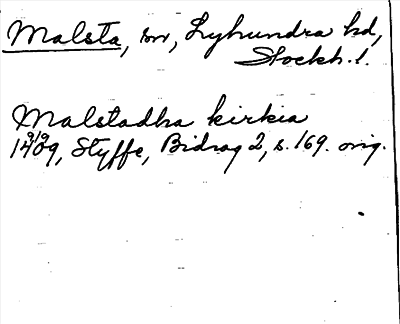 Malsta, sn, Lyhundra hd,
Stockh. l.
Malstadha kirkia
1409, Styffe, Bidrag 2, s. 169. orig.